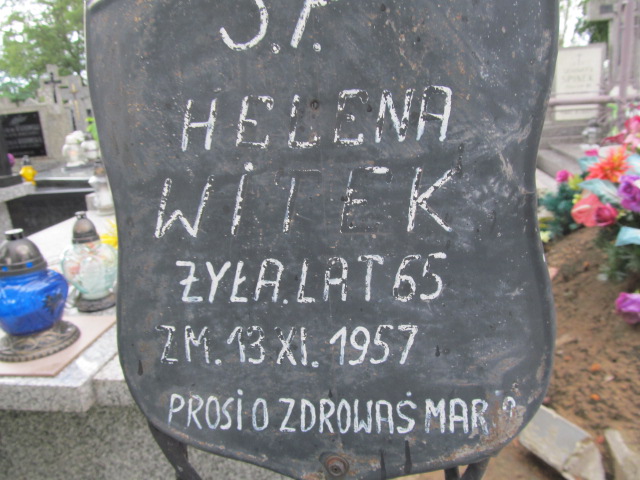 Ś.P.
HELENA
WITEK
ŻYŁA. LAT 65
ZM. 13 XI. 1957
PROSI O ZDROWAŚ MARIO